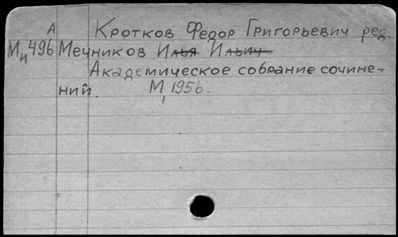 А
Кротков Федор Григорьевич ред.
М₄496 Мечников Илья Ильич
Академическое собрание сочине-
ний. М, 1956.